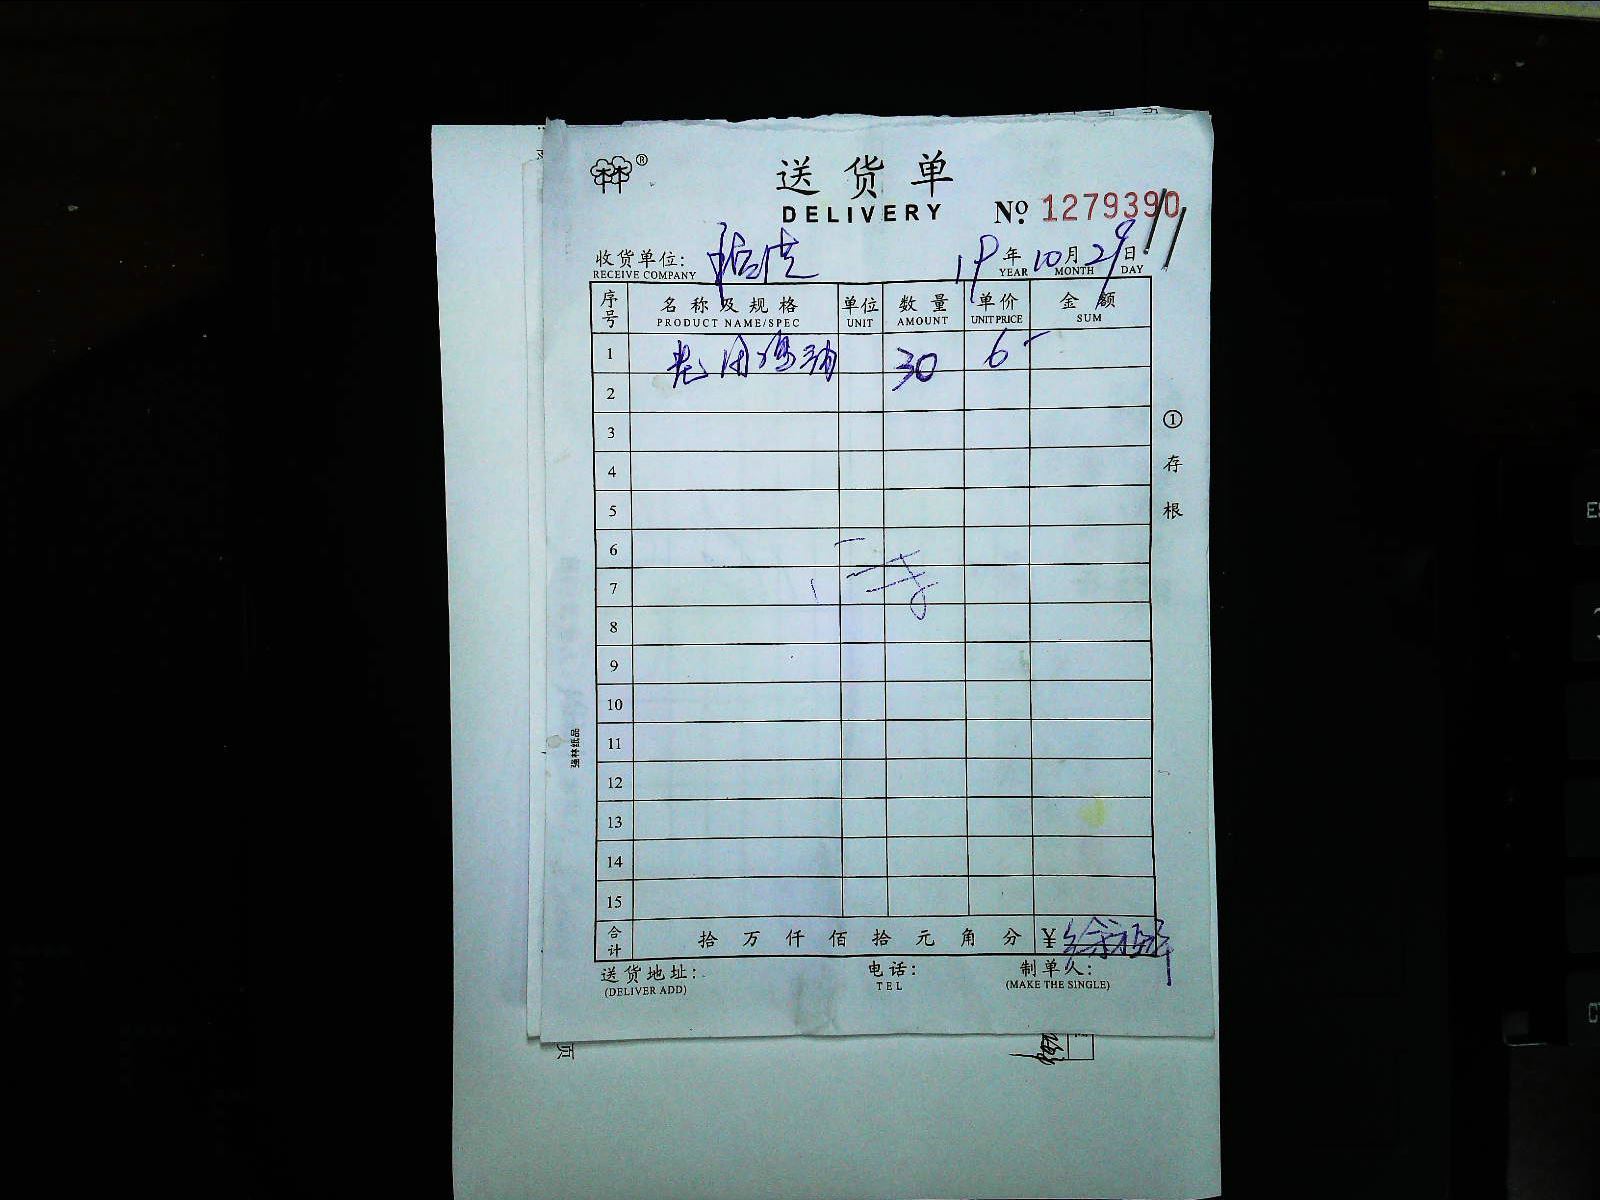 林林®
送货单
DELIVERY
№ 1279390
收货单位:
RECEIVE COMPANY
19年10月29日
YEAR MONTH DAY
序号 名称及规格 单位 数量 单价 金额
PRODUCT NAME/SPEC UNIT AMOUNT UNIT PRICE SUM
1 30 6-
2
3
4
5
6
7
8
9
10
11
12
13
14
15
合计 拾 万 仟 佰 拾 元 角 分 ¥
送货地址: 电话: 制单人:
(DELIVER ADD) TEL (MAKE THE SINGLE)
①存根
强林纸品
页